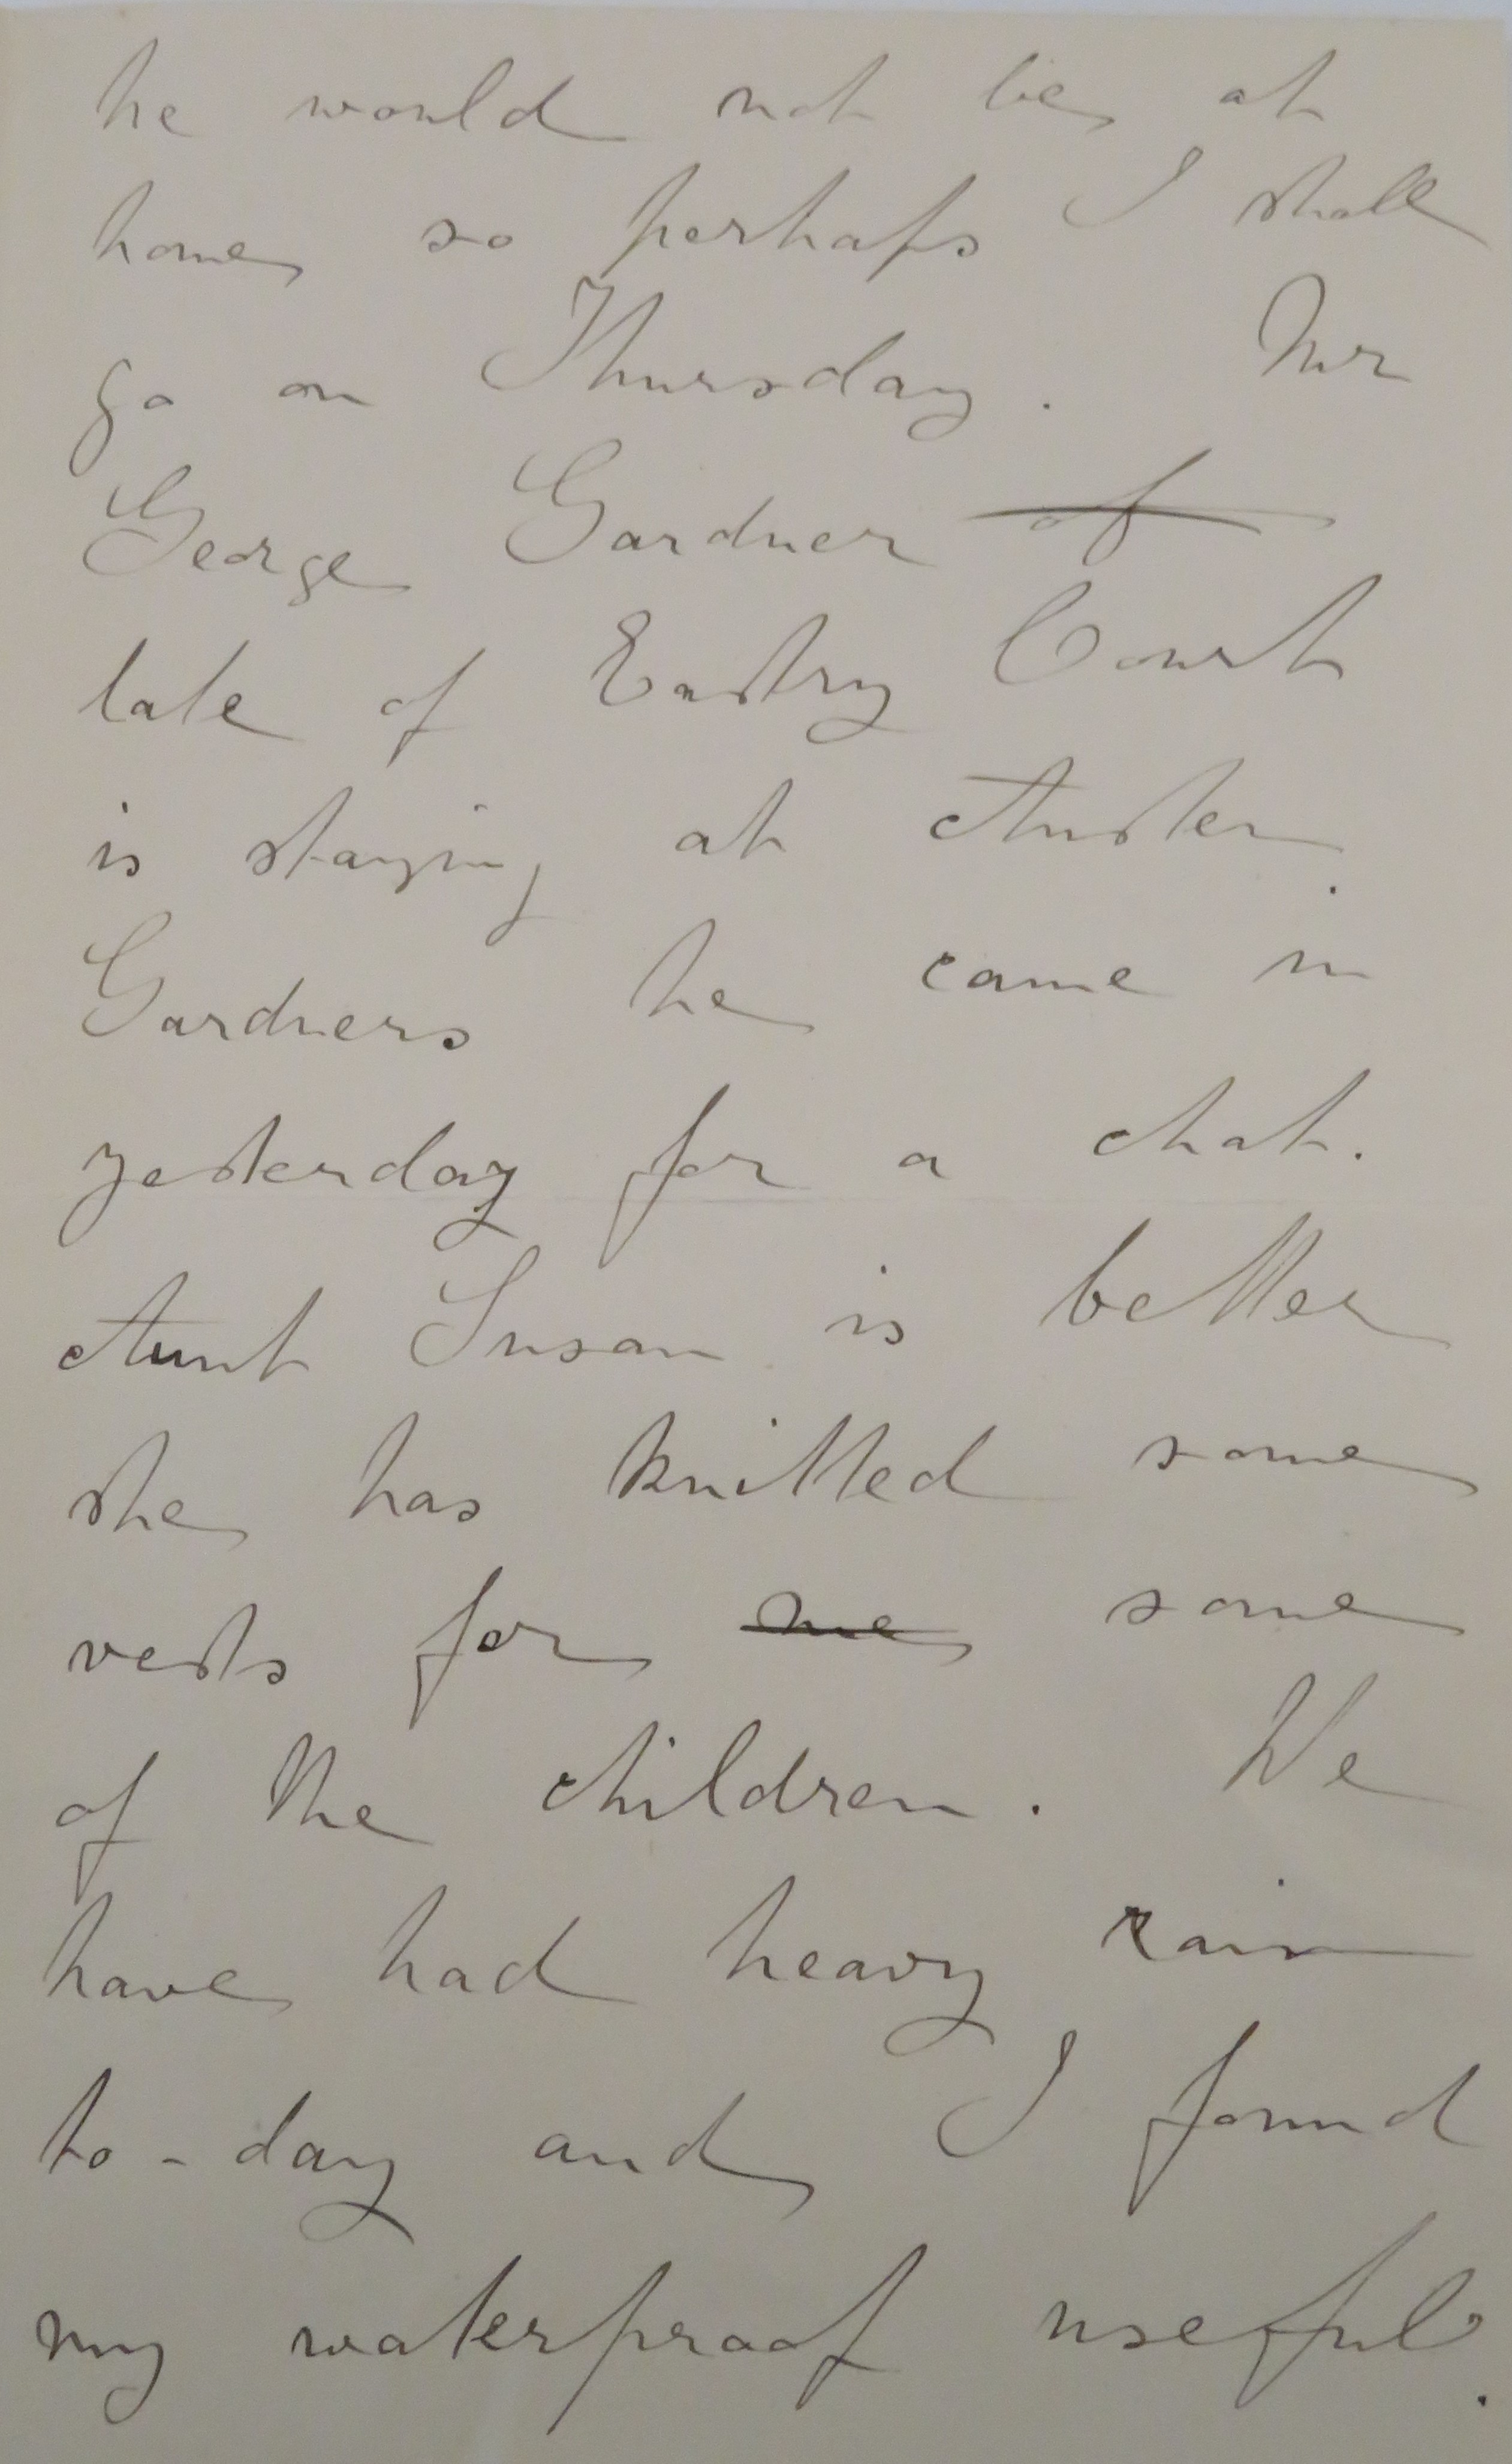 he would not be at
home so perhaps I shall
go on Thursday. Mr
George Gardner of
late of Eastry Court
is staying at Austen
Gardners he came in
yesterday for a chat.
Aunt Susan is better
she has knitted some
vests for me some
of the children. We
have had heavy rain
to-day and I found
my waterproof useful.